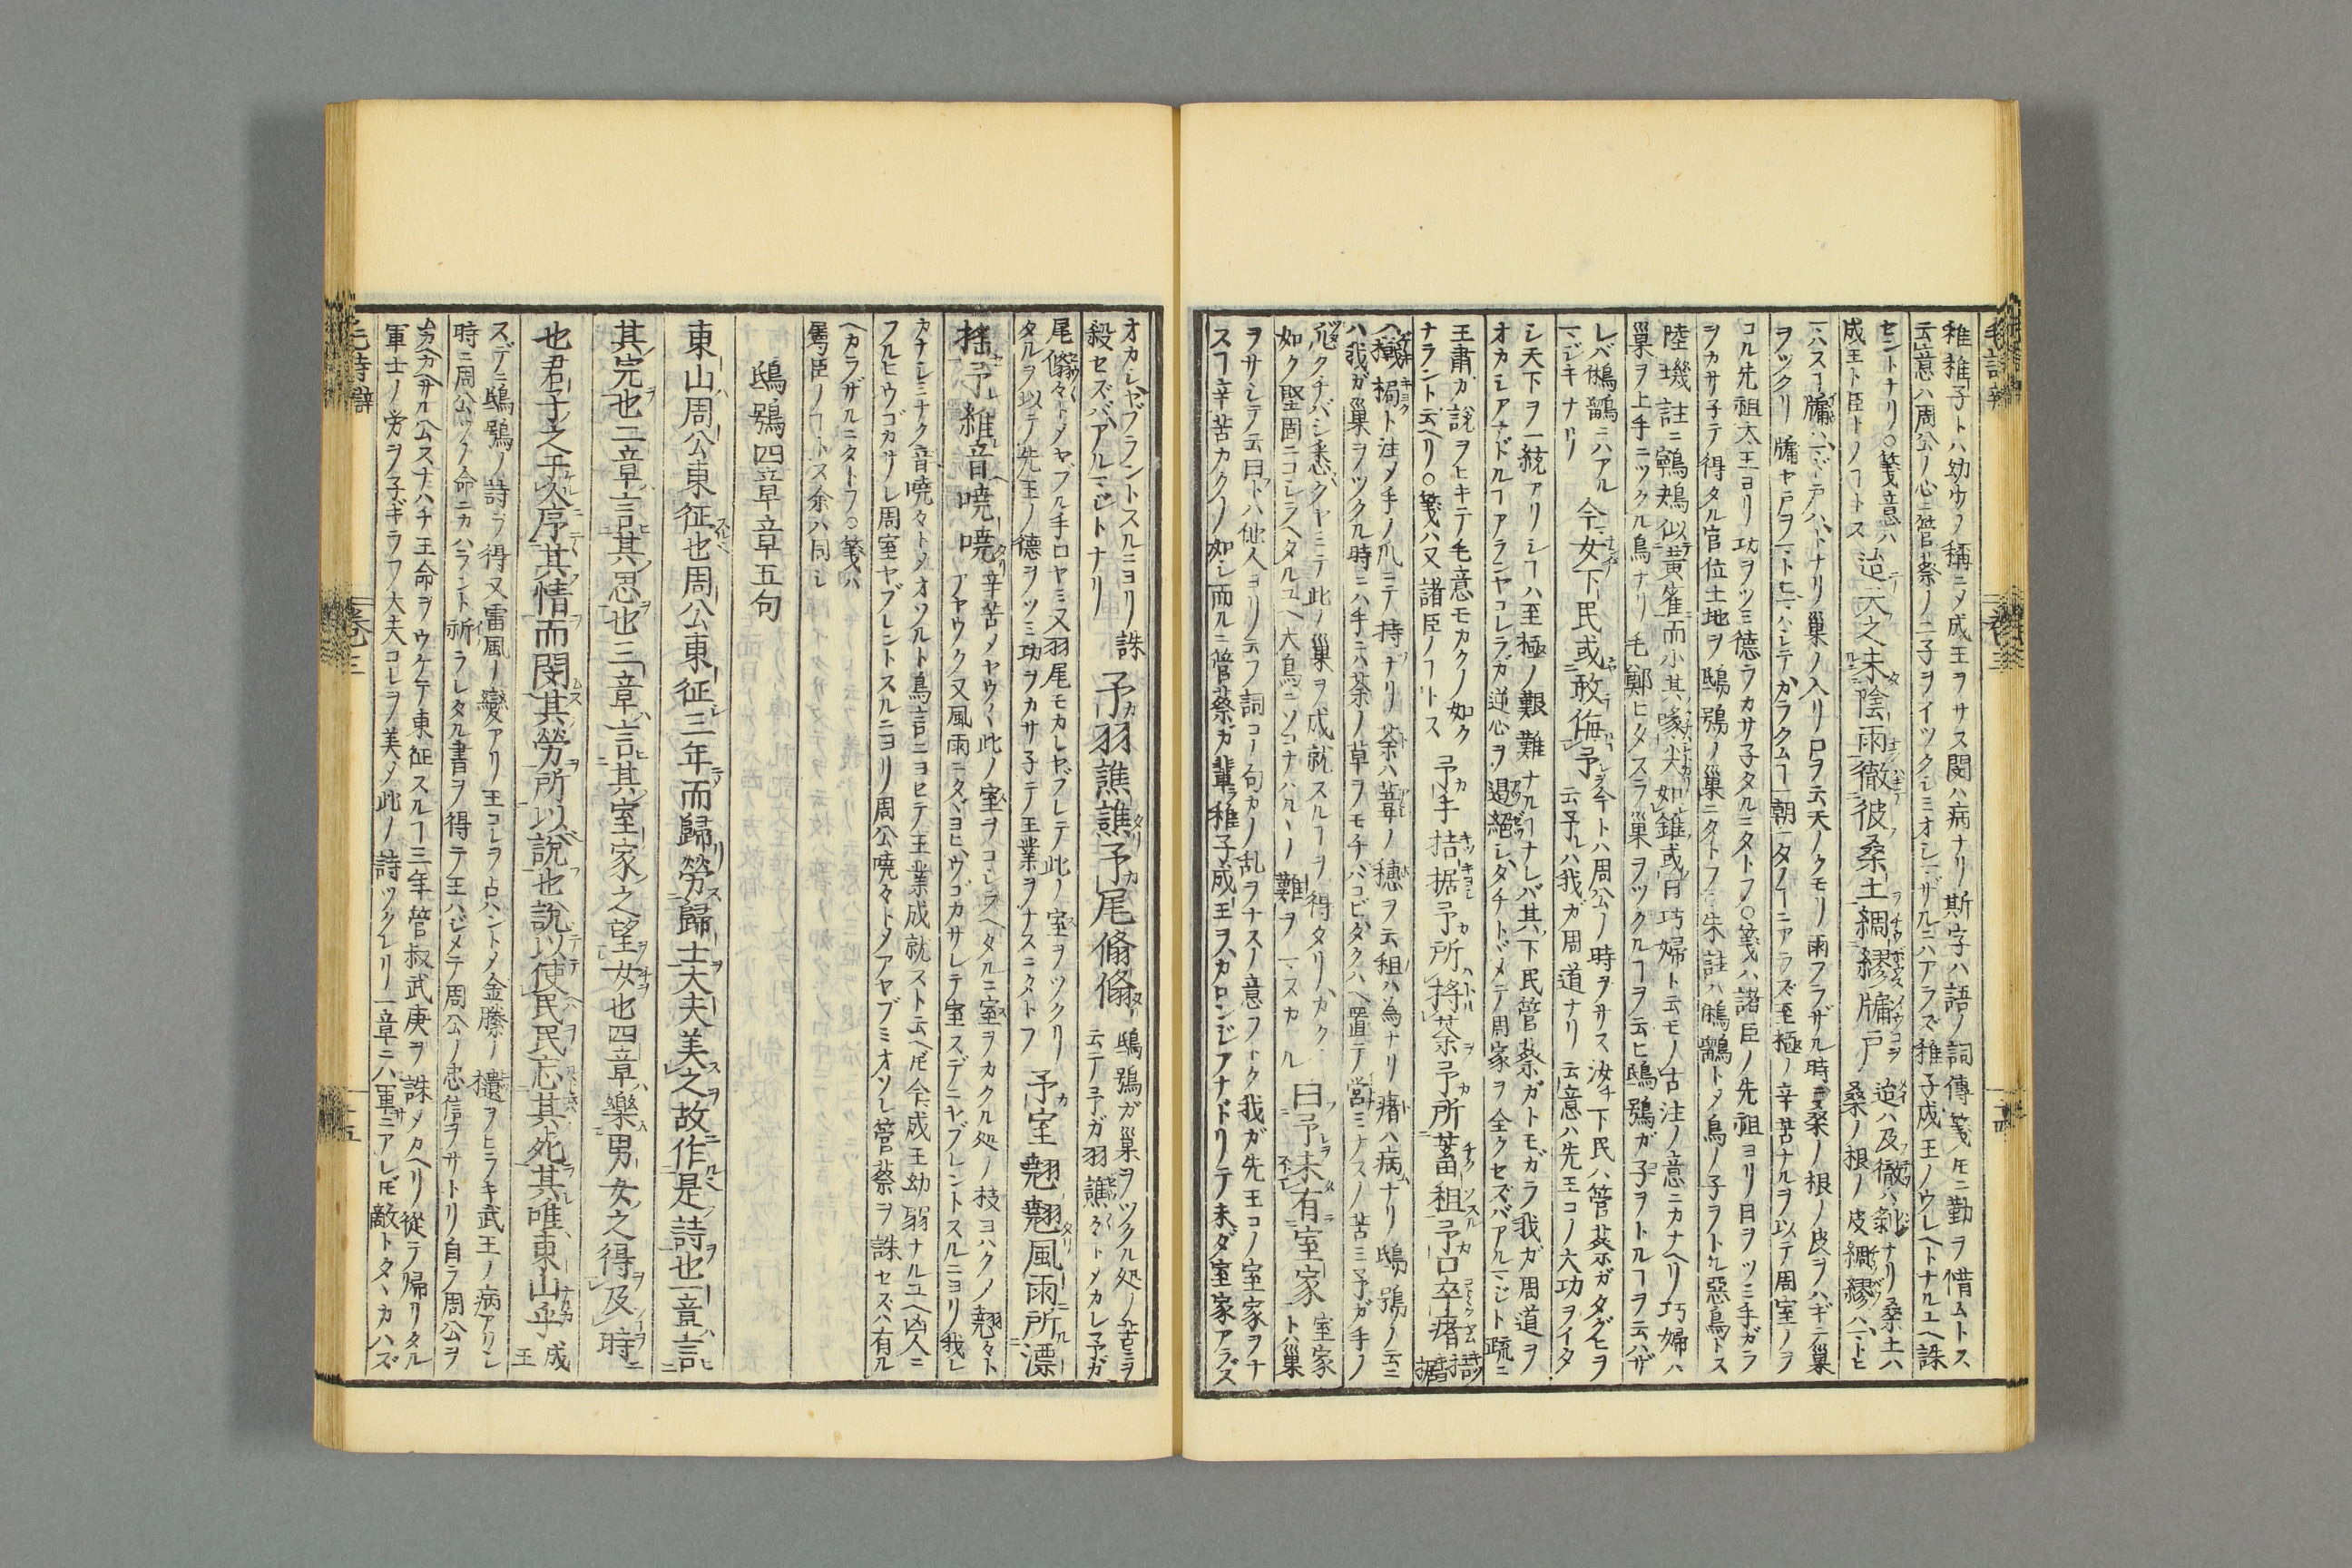 稚稚子トハ幼ウノ稱ニメ成王ヲサス閔ハ病ナリ斯字ハ語ノ詞傳箋ノ𪜈ニ勤ヲ惜ムトス
云意ハ周公ノ心ニ管蔡ノ二子ヲイツクシミオシマザルニハアラズ稚子成王ノウレヘトナルユヘ誅
セントナリ○箋意ハ
成王ト臣ナノヿトス
迨天之未陰雨徹彼桑土綢繆牖戸
迨ハ及徹ハ剝ナリ桑土ハ
桑ノ根ノ皮綢繆ハマトヒ
マハスヿ牖ハマド戸ハトナリ巣ノ入リ口ヲ云天ノクモリ雨フラザル時ニ桑ノ根ノ皮ヲハギテ巣
ヲツクリ牖ヤ戸ヲマトヒマハシテカラクムヿ一朝一夕ノヿニアラズ至極ノ辛苦ナルヲ以テ周室ノヲ
コル先祖大王ヨリ功ヲツミ德ヲカサ子タルニタトフ○箋ハ諸臣ノ先祖ヨリ日ヲツミ手ガラ
ヲカサ子テ得タル官位土地ヲ鴟鴞ノ巣ニタトフ朱註ハ鴟鴞トメ鳥ノ子ヲトル惡鳥トス
陸璣註ニ鴟鴞似黄雀而小其喙尖如錐或曰巧婦ト云モノ古注ノ意ニカナヘリ巧婦ハ
巣ヲ上手ニツクル鳥ナリ毛鄭ヒタスラ巣ヲツクルヿヲ云ヒ鴟鴞ガ子ヲトルヿヲ云ハザ
レバ鴟鴞ニハアル
マジキナリ
今女下民或敢侮予
今トハ周公ノ時ヲサス汝チ下民ハ管蔡ガタグヒヲ
云予ハ我ガ周道ナリ云意ハ先王コノ大功ヲイタ
シ天下ヲ一統アリシヿハ至極ノ艱難ナルヿナレバ其下民管蔡ガトモガラ我ガ周道ヲ
オカシアナドルヿアランヤコレラガ逆心ヲ遏絕シタチトヾメテ周家ヲ全クセズバアルマジト疏ニ
王肅ガ說ヲヒキテ毛意モカクノ如ク
ナラント云ヘリ○箋ハ又諸臣ノヿトス
予手拮据予所捋荼予所蓄租予口卒瘏
拮
据
ハ撠挶ト注メ手ノ爪ニテ持ナリ荼ハ萑ノ穗ヲ云租ハ為ナリ瘏ハ病ナリ鴟鴞ノ云ニ
ハ我ガ巣ヲツクル時ニハ手ニハ荼ノ草ヲモチハコビタクハヘ置テ營ミナスノ苦ミ予ガ手ノ
ミナクチバシ悉クヤミテ此ノ巣ヲ成就スルヿヲ得タリカク
如ク堅固ニコシラヘタルユヘ大鳥ニソコナハルヽノ難ヲマヌカル
曰予未有室家
室家
トハ巣
ヲサシテ云曰トハ他人ヨリノ云フ詞コノ句カノ乱ヲナスノ意フトク我ガ先王コノ室家ヲナ
スヿ辛苦カクノ如シ而ルニ管蔡ガ輩ラ稚子成王ヲカロンジアナドリテ未ダ室家アラズ
オカシヤブラントスルニヨリ誅
殺セズバアルマジトナリ
予羽譙譙予尾翛翛
鴟鴞ガ巣ヲツクル処ノ苦ミヲ
云テ予ガ羽譙々トメカレ予ガ
尾翛々トメヤブル手口ヤミ又羽尾モカレヤブレテ此ノ室ヲツクリ
タルヲ以テ先王ノ德ヲツミ功ヲカサ子テ王業ヲナスニタトフ
予室翹翹風雨所漂
搖予維音嘵嘵
辛苦ノヤウヽ此ノ室ヲコシラヘタルニ室ヲカクル処ノ枝ヨハクノ翹々ト
アヤウク又風雨ニタヾヨヒウゴカサレテ室スデニヤブレントスルニヨリ我レ
カナシミナク音嘵々トメオソルト鳥言ニヨセテ王業成就スト云ヘ𪜈今成王幼弱ナルユヘ凶人ニ
フルヒウゴカサレ周室ヤブレントスルニヨリ周公嘵々トメアヤブミオソレ管蔡ヲ誅セズハ有ル
ヘカラザルニタトフ○箋ハ
屬臣ノヿトス余ハ同シ
鴟鴞四章章五句
東山周公東征也周公東征三年而歸勞歸士大夫美之故作是詩也一章言
其完也二章言其思也三章言其室家之望女也四章樂男女之得及時
也君子之於人序其情而閔其勞所以說也說以使民民忘其死其唯東山乎
成
王
スデニ鴟鴞ノ詩ヲ得又雷風ノ變アリ王コレヲ占ハントメ金縢ノ樻ヲヒラキ武王ノ病アリシ
時ニ周公ソノ命ニカハラント祈ラレタル書ヲ得テ王ハジメテ周公ノ忠信ヲサトリ自ラ周公ヲ
ムカヘサル公スナハチ王命ヲウケテ東征スルヿ三年管叔武庚ヲ誅メカヘリ從テ歸リタル
軍士ノ労ヲ子ギラフ大夫コレヲ美メ此ノ詩ツクレリ一章ニハ軍ニアレ𪜈敵トタヽカハズ